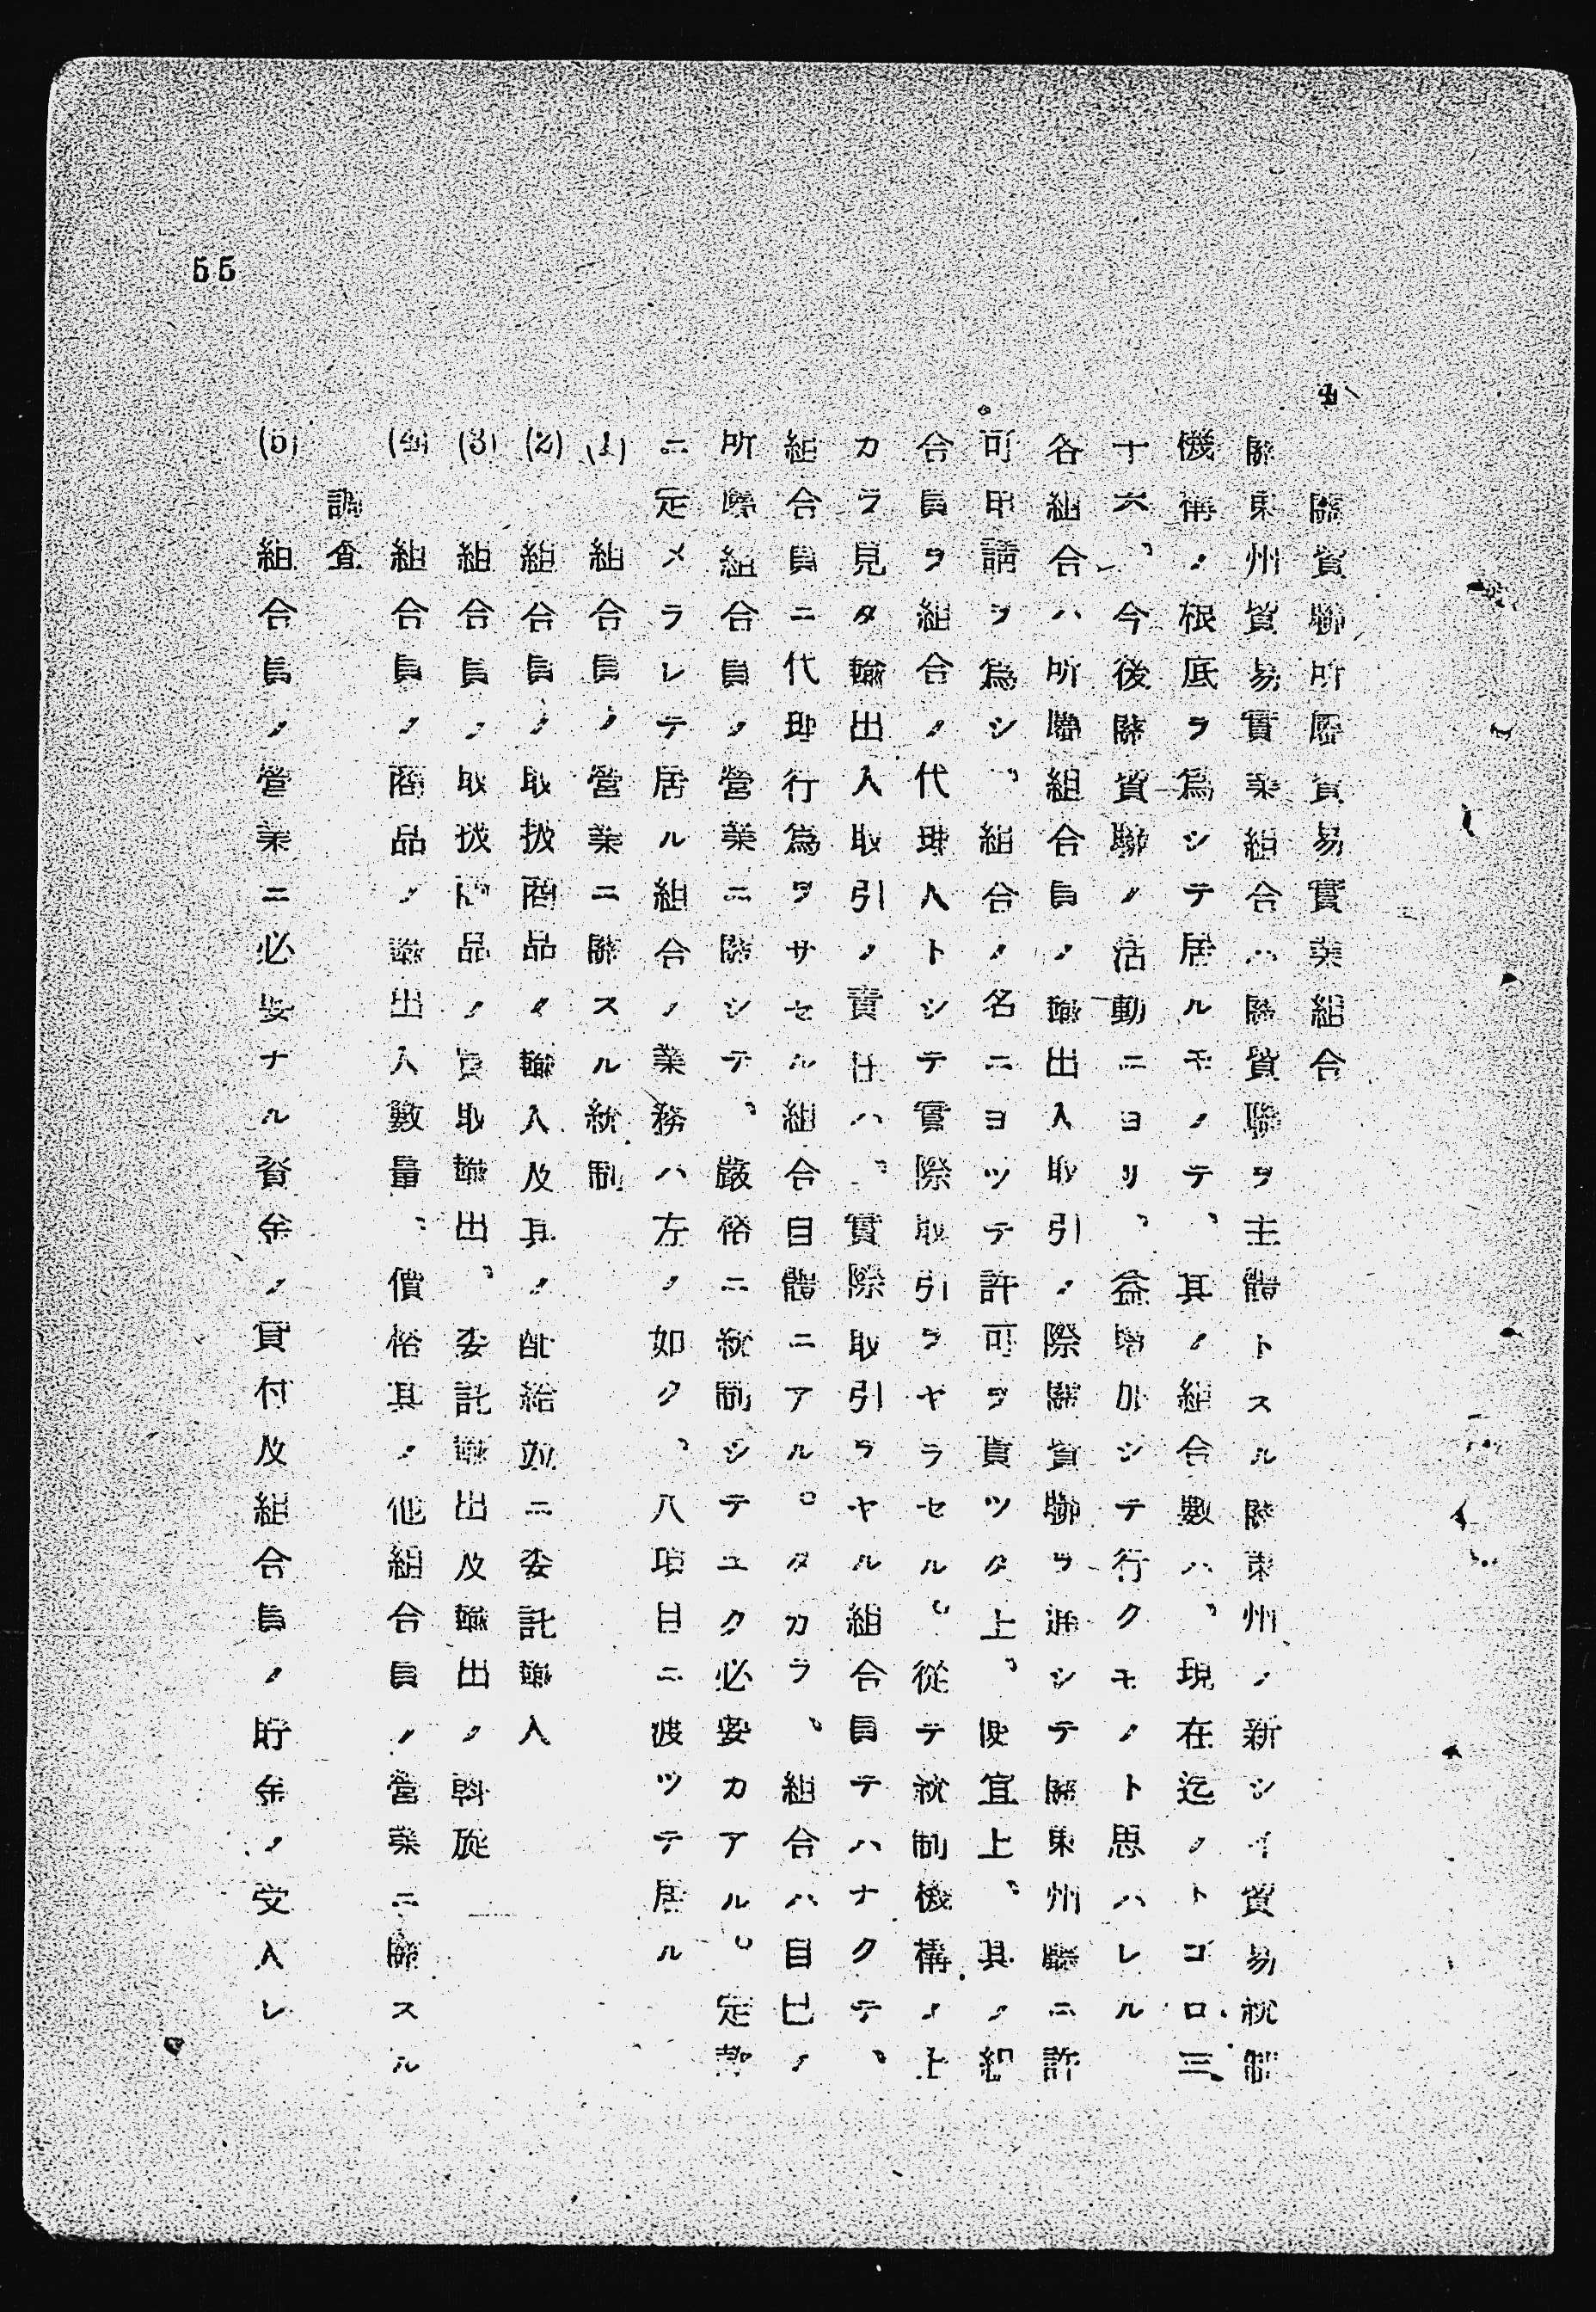 4、
關貿聯所屬貿易實業組合
關東州貿易實業組合ハ關貿聯ヲ主體トスル關東州ノ新シイ貿易統制
機構ノ根底ヲ爲シテ居ルモノテ、其ノ組合數ハ、現在迄ノトコロ三
十六、今後關貿聯ノ活動ニヨリ、益增加シテ行クモノト思ハレル
各組合ハ所屬組合員ノ輸出入取引ノ際關貿聯ヲ通シテ關東廳ニ許
可申請ヲ爲シ、組合ノ名ニヨツテ許可ヲ貰ツタ上、便宜上、其ノ組
合員ヲ組合ノ代理人トシテ實際取引ヲヤラセル。從テ統制機構ノ上
カラ見タ輸出入取引ノ責任ハ、實際取引ヲヤル組合員テハナクテ、
組合員ニ代理行爲ヲサセル組合自體ニアル。タカラ、組合ハ自己ノ
所屬組合員ノ營業ニ關シテ、嚴格ニ統制シテユク必要カアル。定款
ニ定メラレテ居ル組合ノ業務ハ左ノ如ク、八項目ニ渡ツテ居ル
(1) 組合員ノ營業ニ關スル統制
(2) 組合員ノ取扱商品ノ輸入及其ノ配給竝ニ委託輸入
(3) 組合員ノ取扱商品ノ買取輸出、委託輸出及輸出ノ斡旋
(4) 組合員ノ商品ノ輸出入數量、價格其ノ他組合員ノ營業ニ關スル
調査
(5) 組合員ノ營業ニ必要ナル資金ノ貸付及組合員ノ貯金ノ受入レ
55